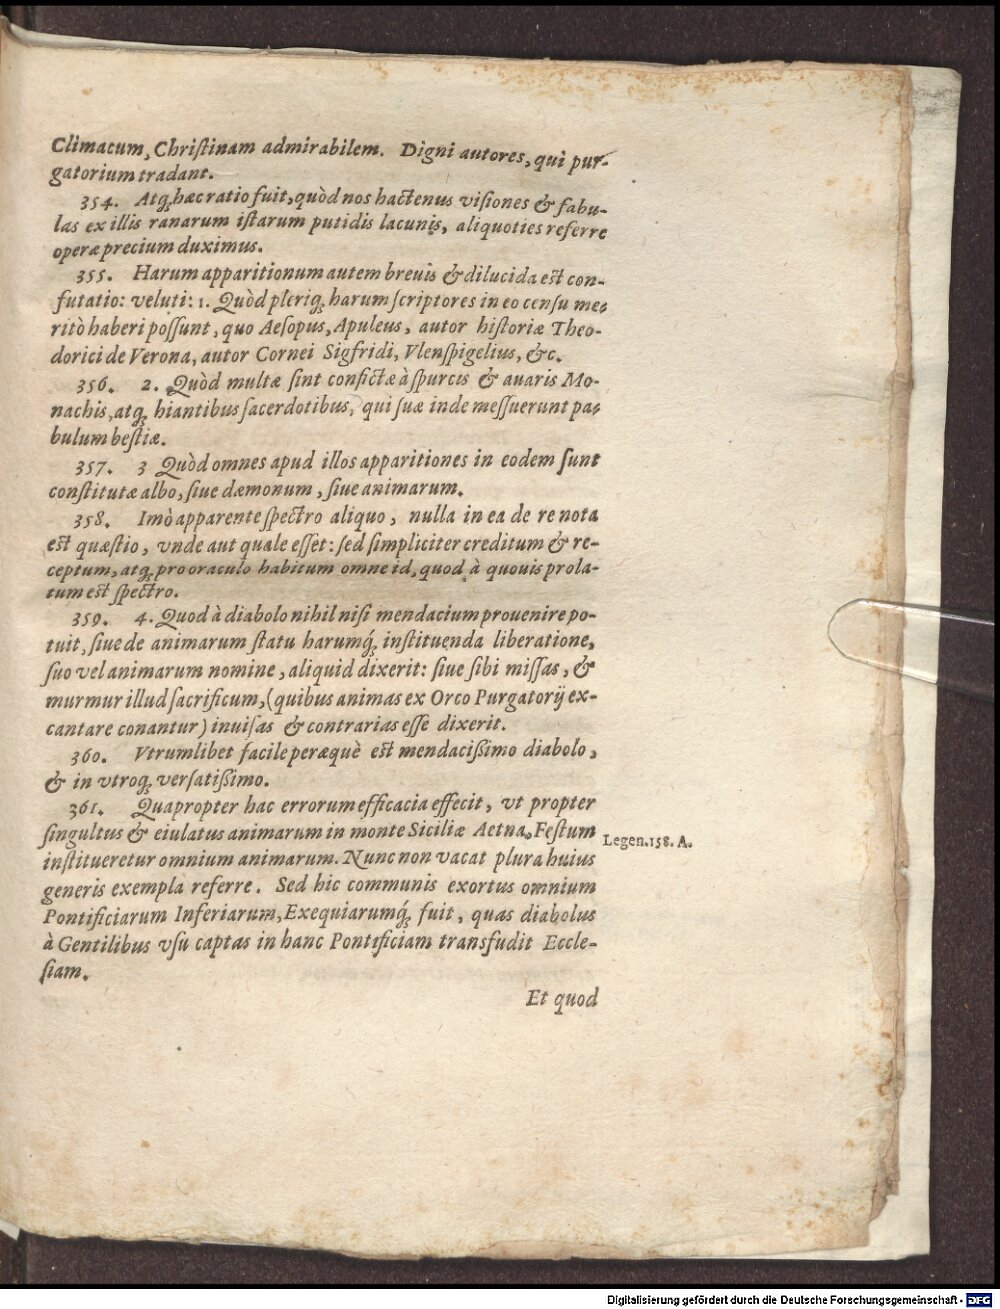 Climacum, Chriſtinam admirabilem. Digni autores, qui pur-
gatorium tradant.
354. Atq́; hæc ratio fuit, quòd nos hactenus viſiones & fabu-
las ex illis ranarum iſtarum putidis lacunis, aliquoties referre
operæprecium duximus.
355. Harum apparitionum autem breuis & dilucida est con-
futatio: veluti: 1. Quòd pleriq́; harum ſcriptores in eo cenſu me-
ritò haberi poſſunt, quo Aeſopus, Apuleus, autor hiſtoriæ Theo-
dorici de Verona, autor Cornei Sigfridi, Vlenſpigelius, &c.
356. 2. Quòd multæ ſint confictæ à ſpurcis & auaris Mo-
nachis, atq́; hiantibus ſacerdotibus, qui ſuæ inde meſſuerunt pa-
bulum beſtiæ.
357. 3 Quòd omnes apud illos apparitiones in eodem ſunt
conſtitutæ albo, ſiue dæmonum, ſiue animarum.
358. Imò apparente ſpectro aliquo, nulla in ea de re nota
est quæſtio, vnde aut quale eſſet: ſed ſimpliciter creditum & re-
ceptum, atq́; pro oraculo habitum omne id, quod à quouis prola-
tum est ſpectro.
359. 4. Quod à diabolo nihil niſi mendacium prouenire po-
tuit, ſiue de animarum ſtatu harumq́; inſtituenda liberatione,
ſuo vel animarum nomine, aliquid dixerit: ſiue ſibi miſſas, &
murmur illud ſacrificum, (quibus animas ex Orco Purgatorij ex-
cantare conantur) inuiſas & contrarias eſſe dixerit.
360. Vtrumlibet facile peræquè est mendacißimo diabolo,
& in vtroq́; verſatißimo.
361. Quapropter hac errorum efficacia effecit, vt propter
ſingultus & eiulatus animarum in monte Siciliæ Aetna, Feſtum
inſtitueretur omnium animarum. Nunc non vacat plura huius
generis exempla referre. Sed hic communis exortus omnium
Pontificiarum Inferiarum, Exequiarumq́; fuit, quas diabolus
à Gentilibus vſu captas in hanc Pontificiam transfudit Eccle-
ſiam.
Et quod
Legen. 158. A.
Digitalisierung gefördert durch die Deutsche Forschungsgemeinschaft - DFG